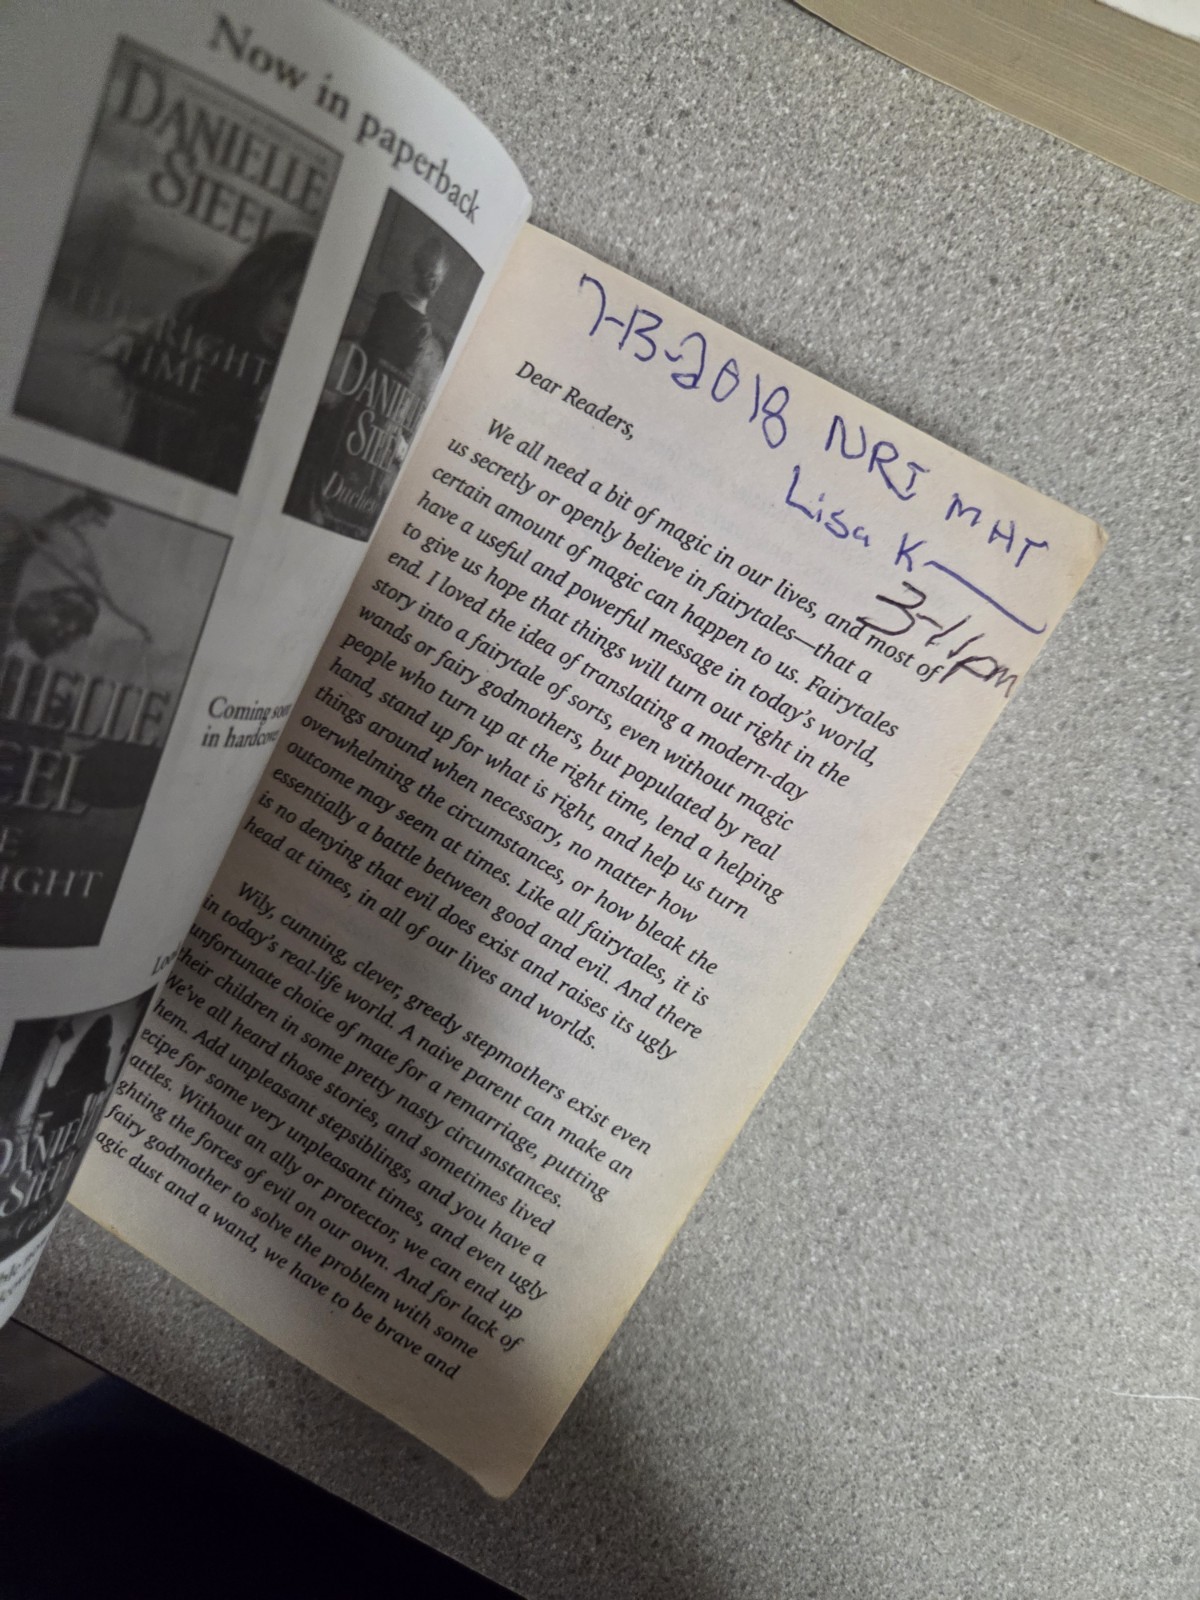 Now in paperback
DANIELLE
STEEL
THE
RIGHT
TIME
DANIELLE
STEEL
Coming soon
in hardcover
IGHT
7-13-2018 NRI MHT
Lisa K
3-11pm
Dear Readers,
We all need a bit of magic in our lives, and most of
us secretly or openly believe in fairytales—that a
certain amount of magic can happen to us. Fairytales
have a useful and powerful message in today's world,
to give us hope that things will turn out right in the
end. I loved the idea of translating a modern-day
story into a fairytale of sorts, even without magic
wands or fairy godmothers, but populated by real
people who turn up at the right time, lend a helping
hand, stand up for what is right, and help us turn
things around when necessary, no matter how
overwhelming the circumstances, or how bleak the
outcome may seem at times. Like all fairytales, it is
essentially a battle between good and evil. And there
is no denying that evil does exist and raises its ugly
head at times, in all of our lives and worlds.
Wily, cunning, clever, greedy stepmothers exist even
in today's real-life world. A naive parent can make an
unfortunate choice of mate for a remarriage, putting
their children in some pretty nasty circumstances.
We've all heard those stories, and sometimes lived
hem. Add unpleasant stepsiblings, and you have a
ecipe for some very unpleasant times, and even ugly
attles. Without an ally or protector, we can end up
ghting the forces of evil on our own. And for lack of
fairy godmother to solve the problem with some
agic dust and a wand, we have to be brave and